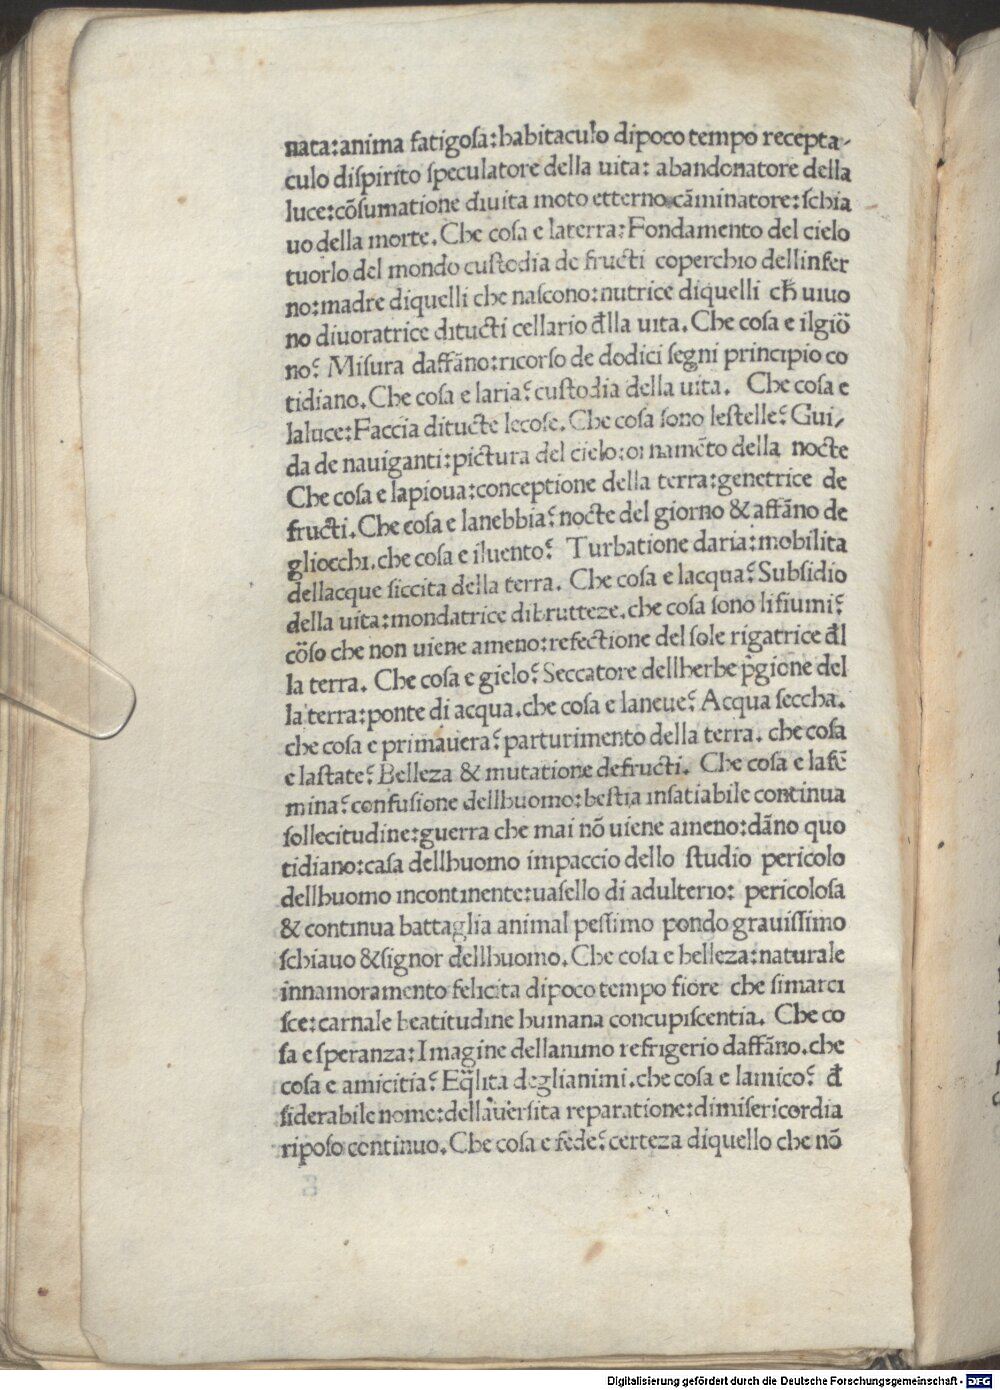 nata:anima fatigoſa:habitaculo dipoco tempo recepta-
culo diſpirito ſpeculatore della uita: abandonatore della
luce:cõſumatione diuita moto etterno cãminatore:ſchia
uo della morte. Che coſa e laterra: Fondamento del cielo
tuorlo del mondo cuſtodia de fructi coperchio dellinfer
no:madre diquelli che naſcono:nutrice diquelli cħ uiuo
no diuoratrice ditucti cellario đlla uita. Che coſa e ilgiõ
no? Miſura daffãno:ricorſo de dodici ſegni principio co
tidiano. Che coſa e laria? cuſtodia della uita. Che coſa e
laluce: Faccia ditucte lecoſe. Che coſa ſono leſtelle? Gui/
da de nauiganti:pictura del cielo:ornamẽto della nocte
Che coſa e lapioua:conceptione della terra:genetrice de
fructi. Che coſa e lanebbia? nocte del giorno & affãno de
gliocchi. che coſa e iluento? Turbatione daria:mobilita
dellacque ſiccita della terra. Che coſa e lacqua? Subſidio
della uita:mondatrice dibrutteze. che coſa ſono lifiumi?
cõſo che non uiene ameno:refectione del ſole rigatrice đl
la terra. Che coſa e gielo? Seccatore dellherbe p̃gione del
la terra:ponte di acqua. che coſa e laneue? Acqua ſeccha.
che coſa e primauera? parturimento della terra. che coſa
e laſtate? Belleza & mutatione defructi. Che coſa e lafẽ
mina? confuſione dellhuomo:beſtia inſatiabile continua
ſollecitudine:guerra che mai nõ uiene ameno:dãno quo
tidiano:caſa dellhuomo impaccio dello ſtudio pericolo
dellhuomo incontinente:uaſello di adulterio: pericoloſa
& continua battaglia animal peſſimo pondo grauiſſimo
ſchiauo & ſignor dellhuomo. Che coſa e belleza:naturale
innamoramento felicita dipoco tempo fiore che ſimarci
ſce:carnale beatitudine humana concupiſcentia. Che co
ſa e ſperanza: Imagine dellanimo refrigerio daffãno. che
coſa e amicitia? Eq̃lita deglianimi. che coſa e lamico? đ
ſiderabile nome:dellau̓erſita reparatione:dimiſericordia
ripoſo continuo. Che coſa e fede? certeza diquello che nõ
Digitalisierung gefördert durch die Deutsche Forschungsgemeinschaft - DFG